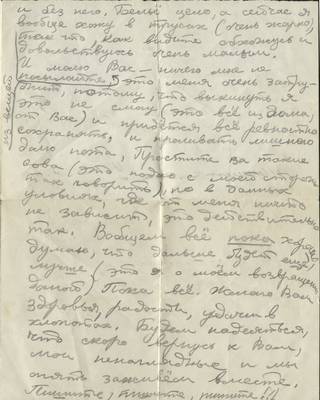 и без него. Бельё цело, а сейчас я
вообще хожу в трусах (очень жарко),
так что как видите обхожусь и
довольствуюсь очень малым.
И молю Вас – ничего мне не
посылайте, это меня очень затруд-
нит, потому, что выкинуть я
это не смогу (это всё из дома,
от Вас) и придётся всё ревностно
сохранять, и проливать лишнего
дамо пота, Простите за такие
слова (это подло с моей стороны
так говорить), но в данных
условиях, где от меня ничто
не зависит, это действительно
так. Вообщем всё пока хорошо
думаю, что дальше будет ещё
лучше (это я о моём возвращении
домой) Пока всё. Желаю Вам
здоровья, радости, удачи в
хлопотах. Будем надеяться,
что скоро вернусь к Вам,
мои ненаглядные и мы
опять заживём вместе.
Пишите, пишите, пишите!!
из вещей